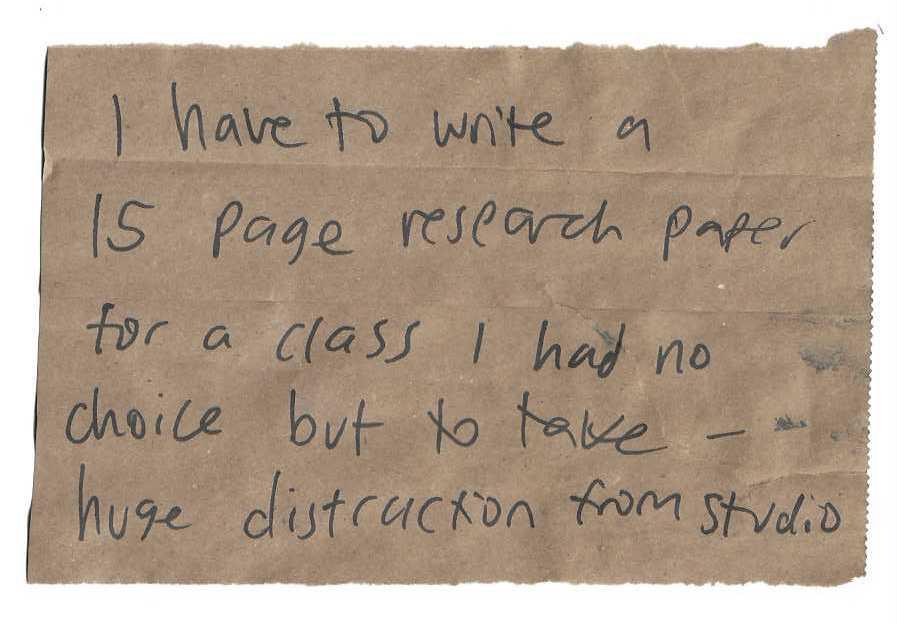 I have to write a
15 page research paper
for a class I had no
choice but to take –
huge distraction from studio